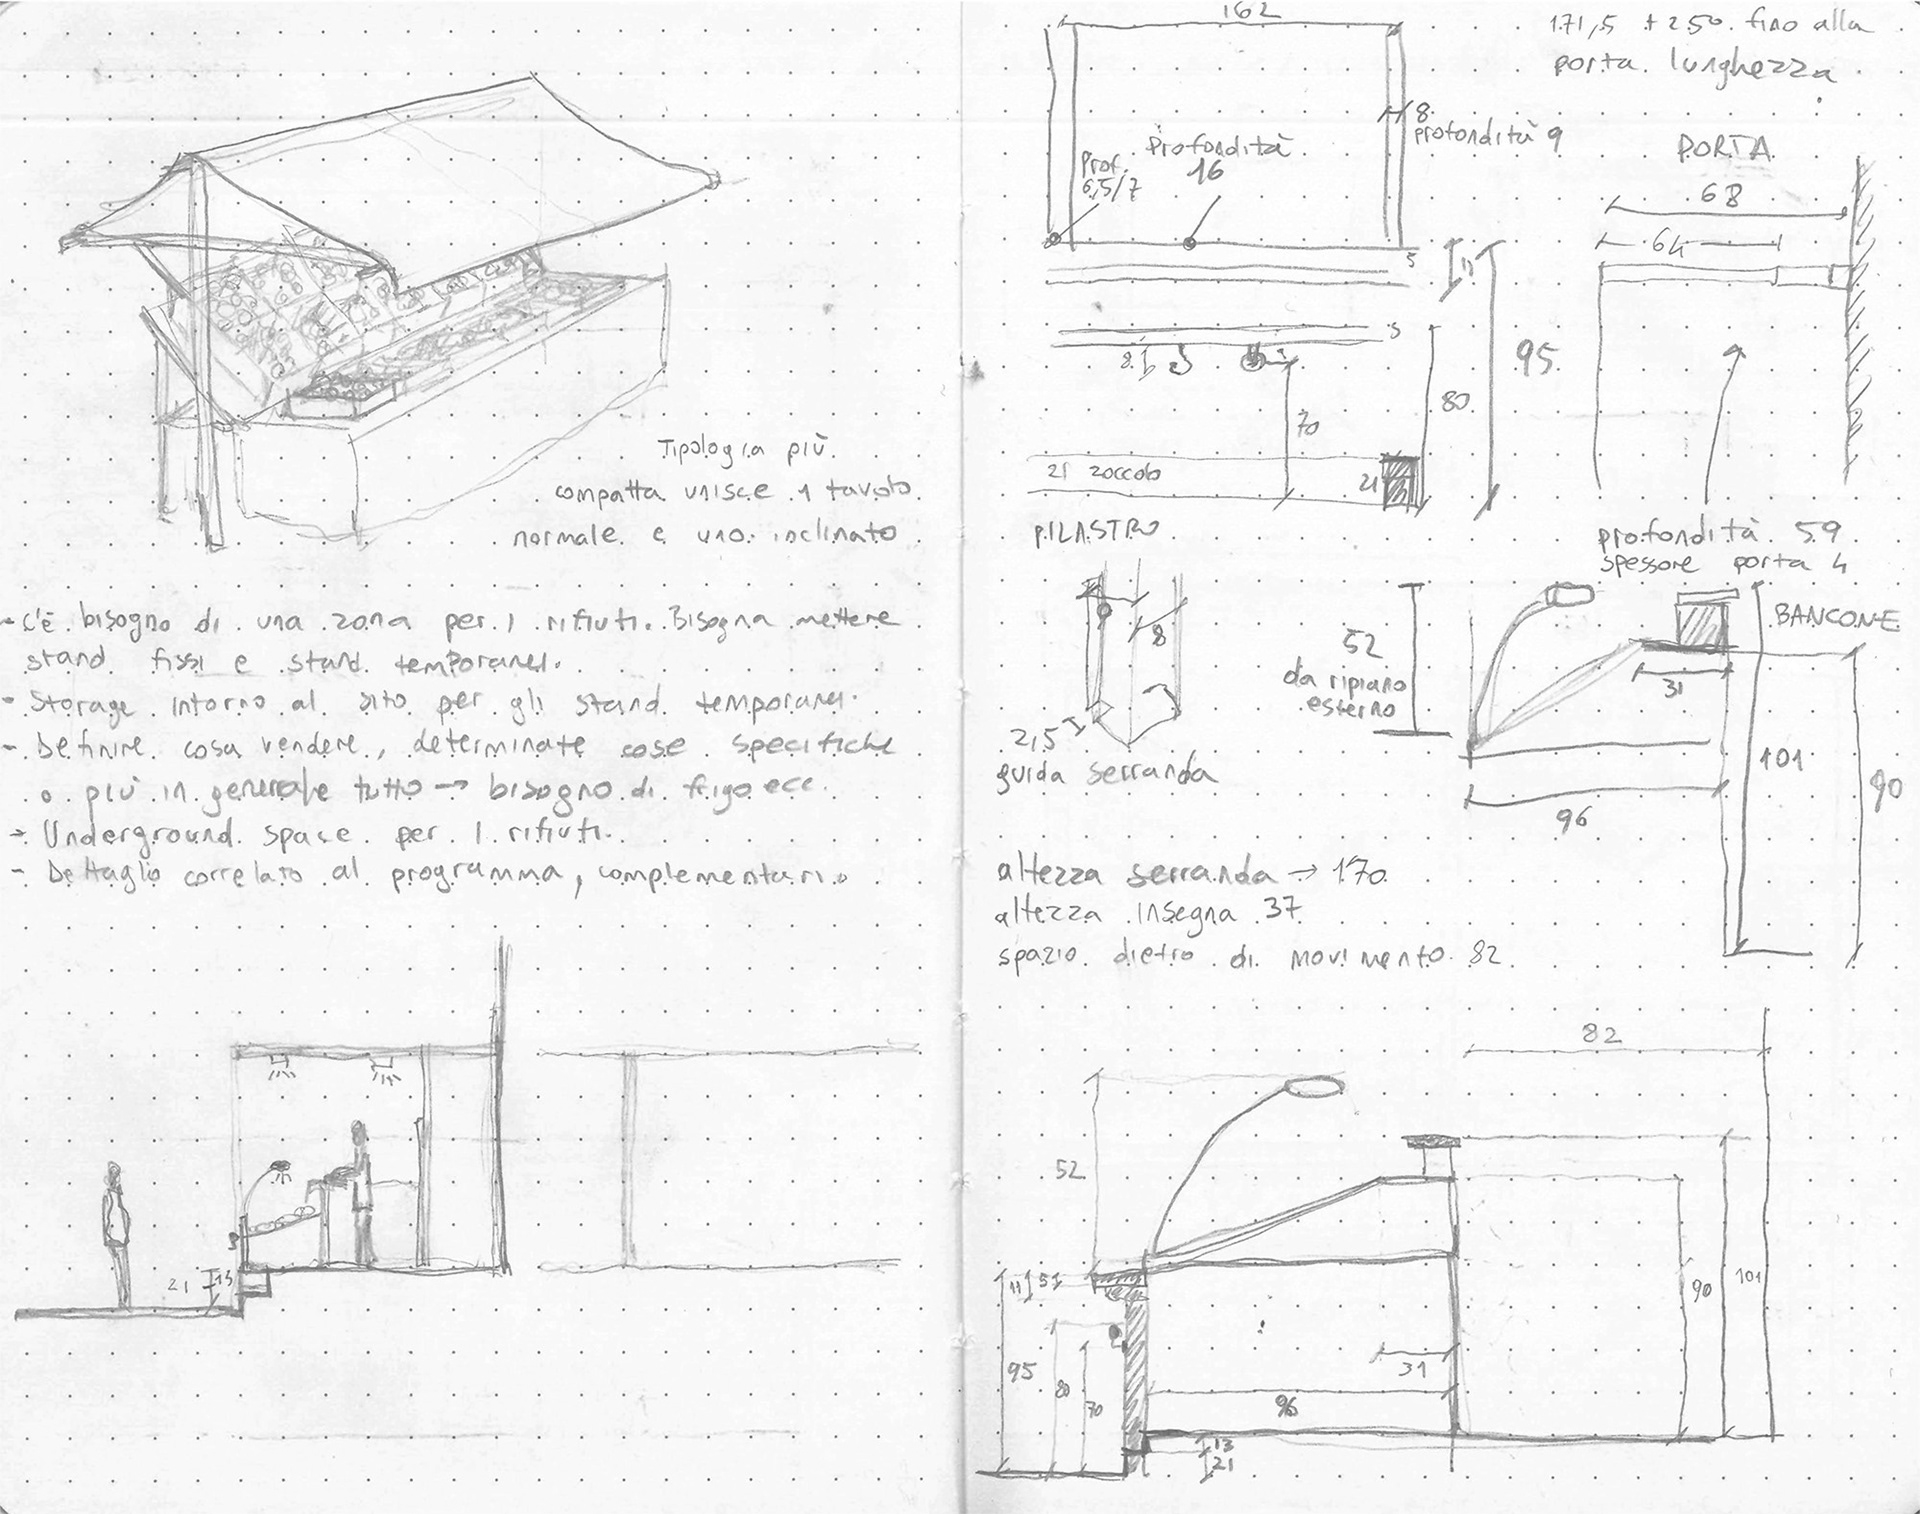 Tipologia più
compatta unisce 1 tavolo
normale e uno inclinato
- C'è bisogno di una zona per i rifiuti. Bisogna mettere
stand fissi e stand temporanei.
- Storage intorno al sito per gli stand temporanei.
- Definire cosa vendere, determinate cose specifiche
o più in generale tutto → bisogno di frigo ecc.
→ Underground space per i rifiuti.
- Dettaglio correlato al programma, complementari.
21 13
162
171,5 + 250 fino alla
porta lunghezza
8
profondità 9
Profondità
16
Prof.
6,5/7
PORTA
68
64
5
11
5
8
95
80
70
21 zoccolo
21
PILASTRO
profondità 59
spessore porta 4
8
2,5
guida serranda
52
da ripiano
esterno
BANCONE
31
101
90
96
altezza serranda → 170
altezza insegna 37
spazio dietro di movimento 82
82
52
11 5
95
80
70
31
96
90
101
13
21